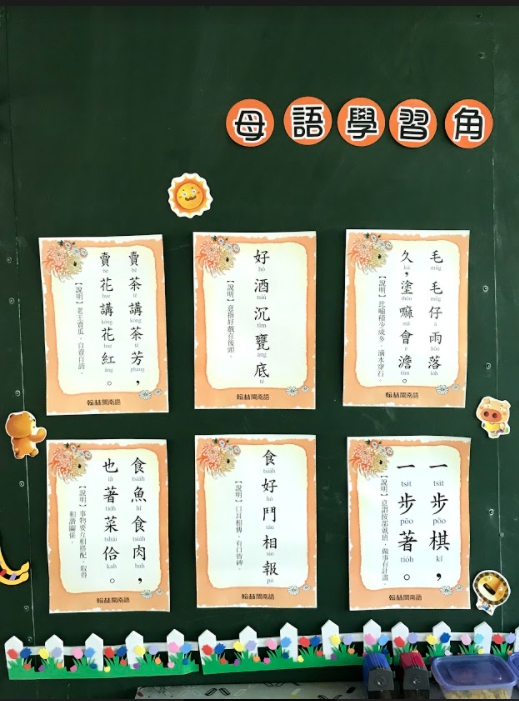 母語學習角
賣茶講茶芳，
賣花講花紅。
【說明】老王賣瓜，自賣自誇。
翰林閩南語
好酒沉甕底
【說明】意指好戲在後頭。
翰林閩南語
毛毛仔雨落
久，塗嘛會澹。
【說明】比喻積少成多，滴水穿石。
翰林閩南語
食魚食肉，
也著菜佮。
【說明】事物要互相搭配，取得
和諧關係。
翰林閩南語
食好鬥相報
【說明】口耳相傳，有口皆碑。
翰林閩南語
一步棋，
一步著。
【說明】意謂按部就班，做事有計畫。
翰林閩南語